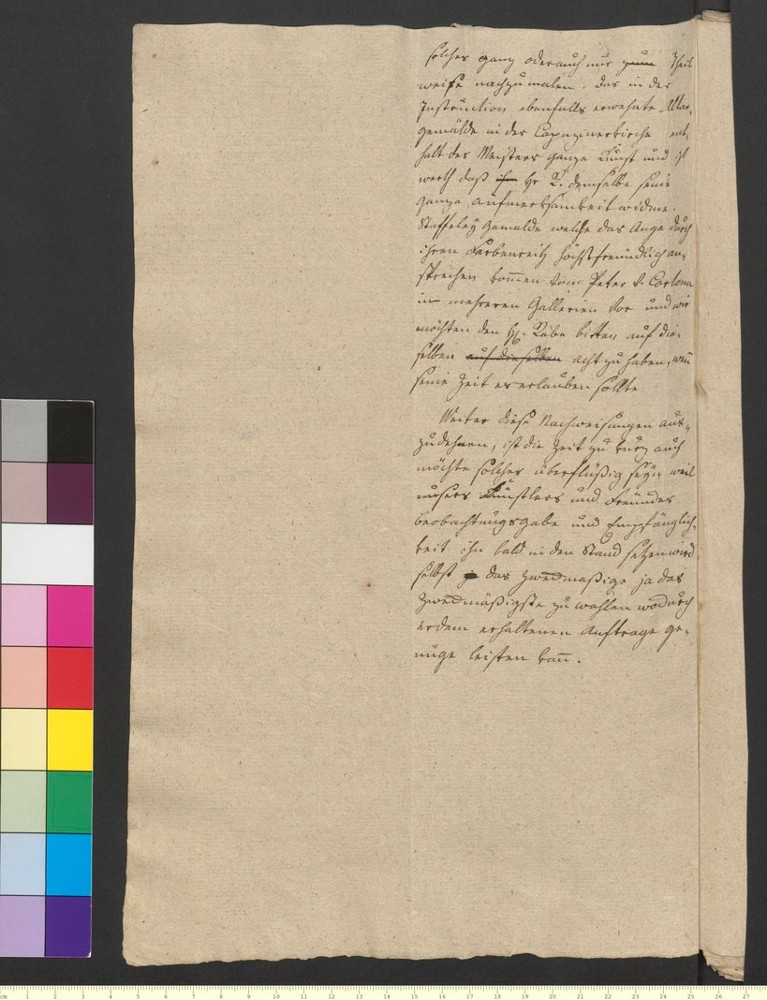 solches ganz oder auch nur zum Theil
weise nachzumalen. das in der
Instruction ebenfalls erwehnte Altar¬
gemälde in der Capuzinerkirche ent¬
halt des Meisters ganze Kunst und ist
werth daß ihm Hr R. demselbe seine
ganze Aufmerksamkeit widme.
Staffeley Gemalde welche das Auge durch
ihren Farbenreitz höchst freundlich an¬
sprechen kom̅en vom Peter v. Cortona
in mehreren Gallerien vor und wir
möchten den Hr. Rabe bitten auf die¬
selben auf dieselben acht zu haben, wen̅
seine Zeit es erlauben sollte
Weiter diese Nachweisungen aus¬
zudehnen, ist die Zeit zu kurz auch
möchte solches überflüßig seyn weil
unsers Künstlers und Freundes
beobachtungsgabe und Empfänglich¬
keit ihn bald in den Stand setzen wird
selbst das Zweckmaßige ja das
Zweckmäßigste zu wahlen wodurch
er dem erhaltenen Auftrage ge¬
nüge leisten kan̅.